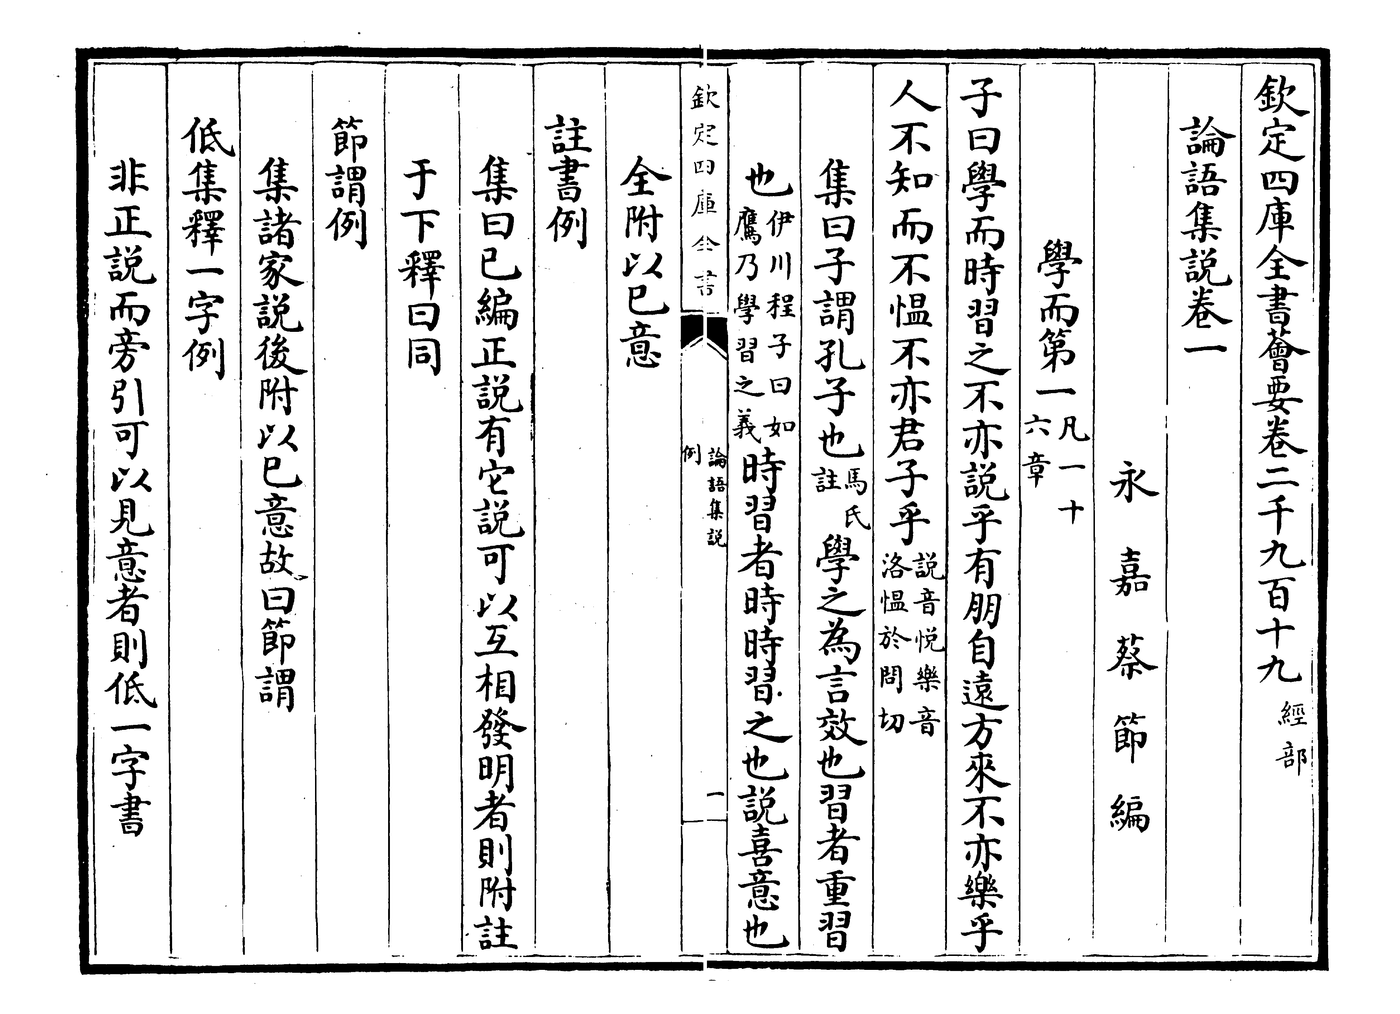 欽定四庫全書薈要卷二千九百十九 經部
論語集説卷一
永嘉蔡節編
學而第一 凡一十六章
子曰學而時習之不亦説乎有朋自遠方來不亦樂乎
人不知而不愠不亦君子乎 説音悦樂音洛愠於問切
集曰子謂孔子也 馬氏註 學之為言效也習者重習
也 伊川程子曰如鷹乃學習之義 時習者時時習之也説喜意也
欽定四庫全書
論語集説
例
一
全附以已意
註書例
集曰已編正説有它説可以互相發明者則附註
于下釋曰同
節謂例
集諸家説後附以已意故曰節謂
低集釋一字例
非正説而旁引可以見意者則低一字書